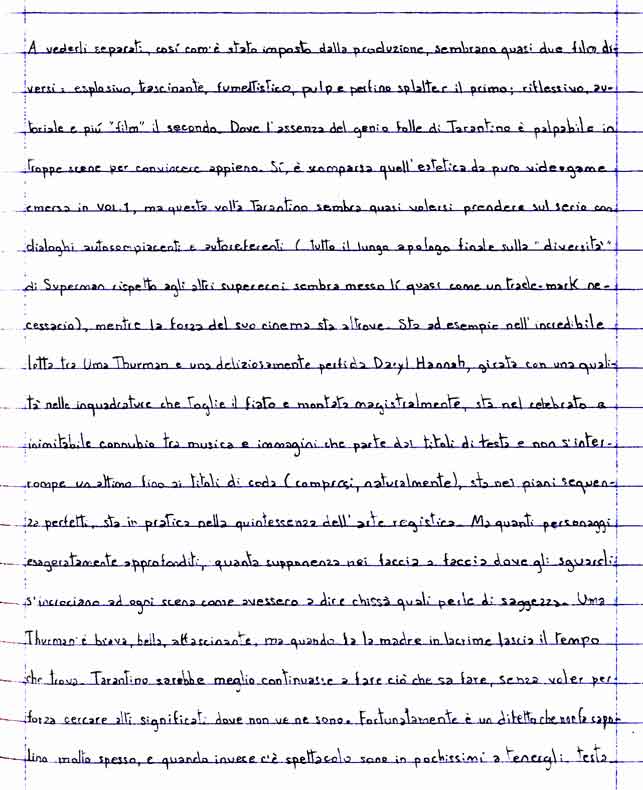 A vederli separati, così com'è stato imposto dalla produzione, sembrano quasi due film di-
versi: esplosivo, trascinante, fumettistico, pulp e perfino splatter il primo; riflessivo, au-
toriale e più "film" il secondo. Dove l'assenza del genio folle di Tarantino è palpabile in
troppe scene per convincere appieno. Sì, è scomparsa quell'estetica da puro videogame
emersa in VOL.1, ma questa volta Tarantino sembra quasi volersi prendere sul serio con
dialoghi autocompiacenti e autoreferenti (tutto il lungo apologo finale sulla "diversità"
di Superman rispetto agli altri supereroi sembra messo lì quasi come un trade-mark ne-
cessario), mentre la forza del suo cinema sta altrove. Sta ad esempio nell'incredibile
lotta tra Uma Thurman e una deliziosamente perfida Daryl Hannah, girata con una quali-
tà nelle inquadrature che toglie il fiato e montata magistralmente, sta nel celebrato e
inimitabile connubio tra musica e immagini che parte dai titoli di testa e non s'inter-
rompe un attimo fino ai titoli di coda (compresi, naturalmente), sta nei piani sequen-
za perfetti, sta in pratica nella quintessenza dell'arte registica. Ma quanti personaggi
esageratamente approfonditi, quanta supponenza nei faccia a faccia dove gli sguardi
s'incrociano ad ogni scena come avessero a dire chissà quali perle di saggezza. Uma
Thurman è brava, bella, affascinante, ma quando fa la madre in lacrime lascia il tempo
che trova. Tarantino sarebbe meglio continuasse a fare ciò che sa fare, senza voler per
forza cercare alti significati dove non ve ne sono. Fortunatamente è un difetto che non fa capo-
lino molto spesso, e quando invece c'è spettacolo sono in pochissimi a tenergli testa